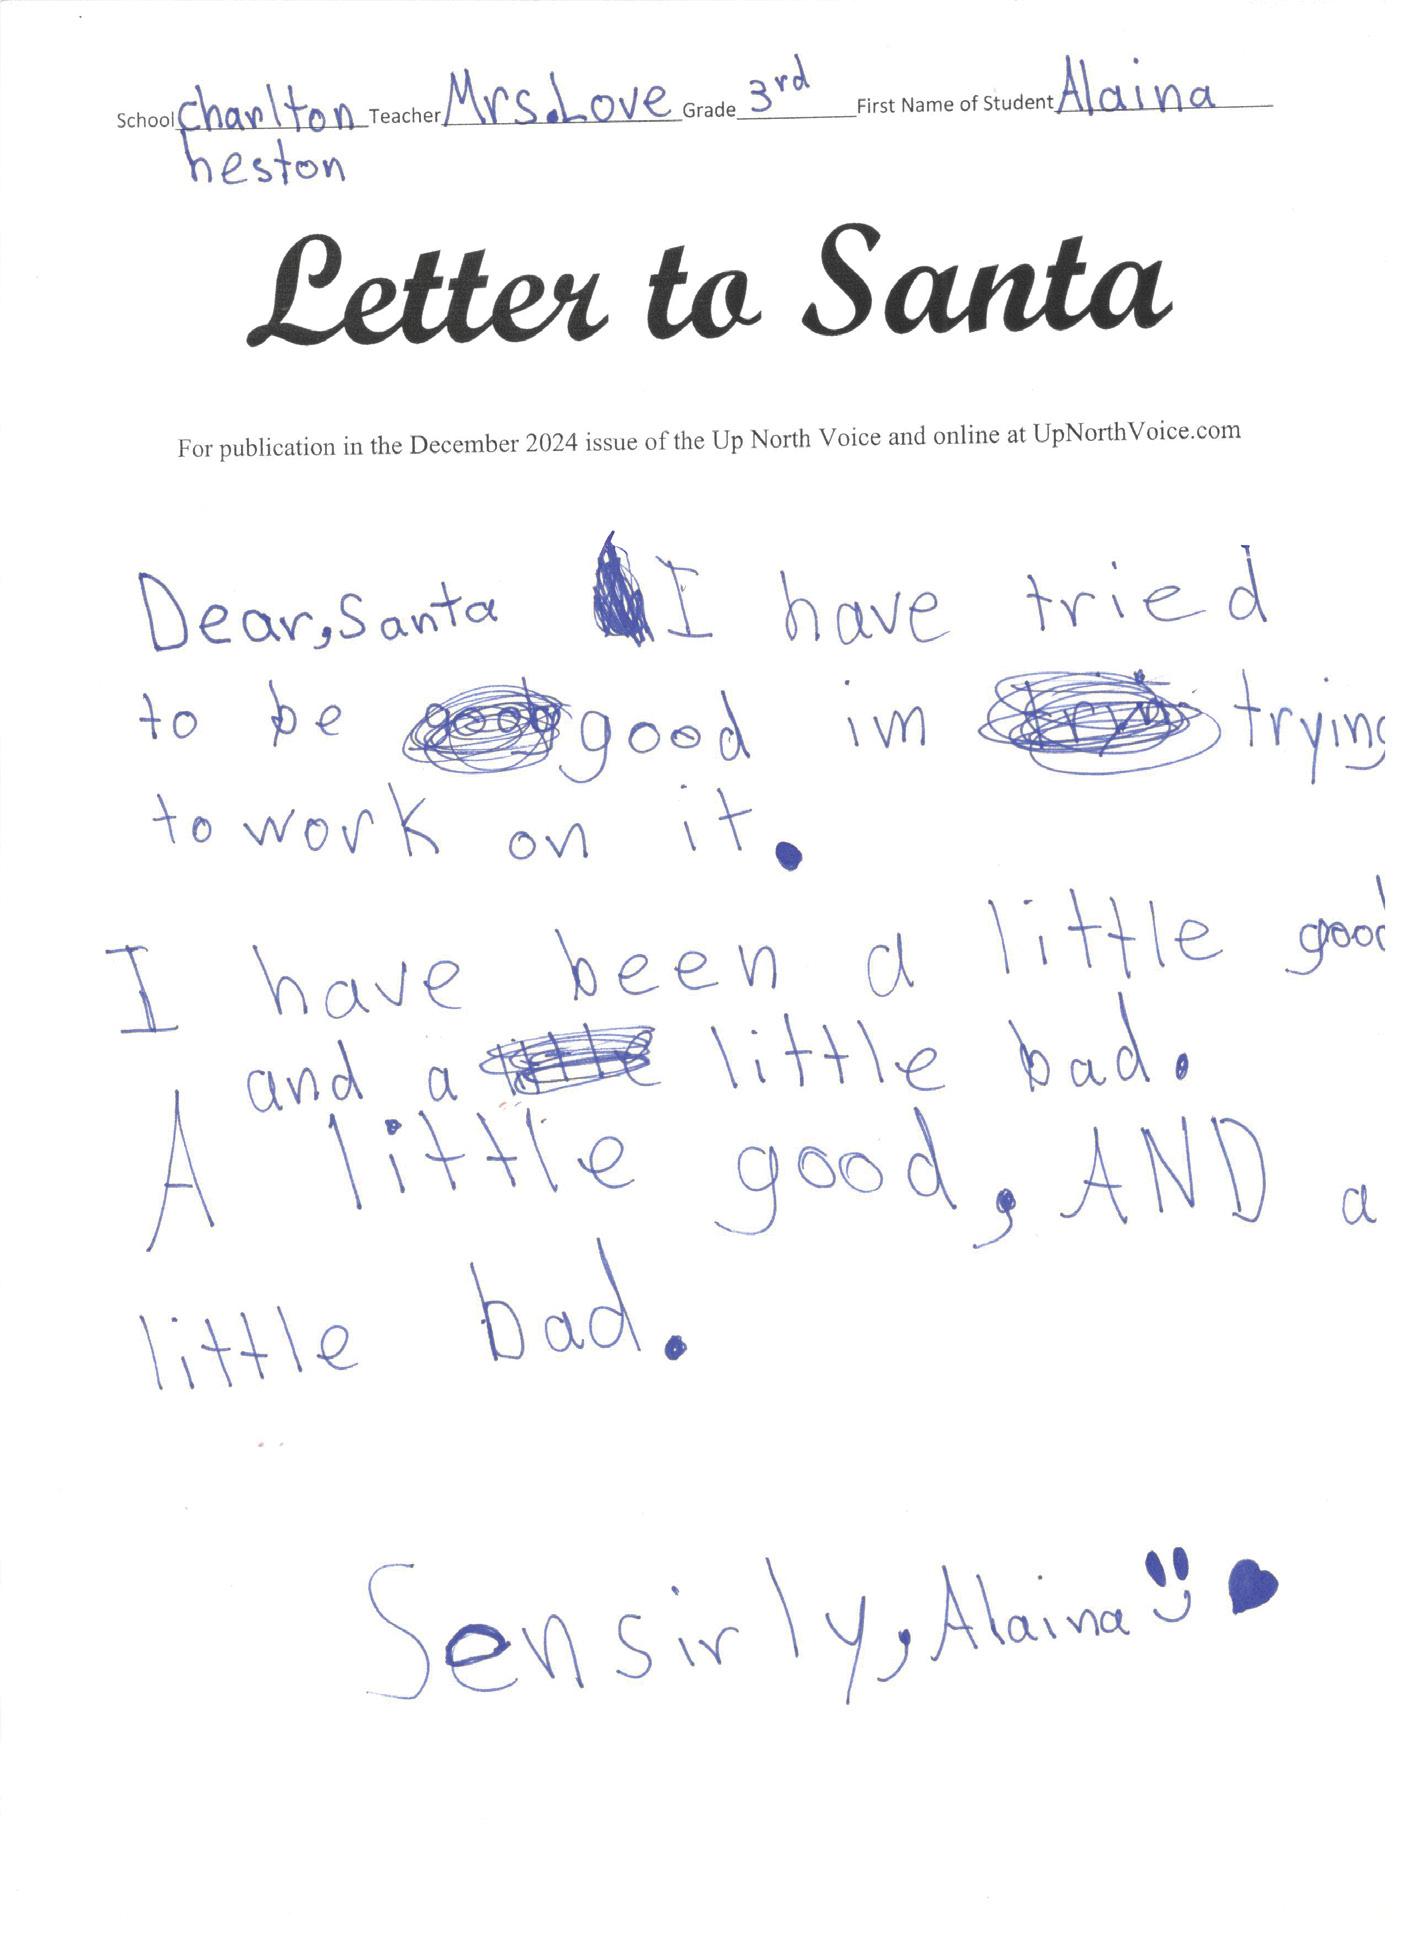 School charlton Teacher Mrs.Love Grade 3rd First Name of Student Alaina
heston
Letter to Santa
For publication in the December 2024 issue of the Up North Voice and online at UpNorthVoice.com
Dear,Santa I have tried
to be good im trying
to work on it.
I have been a little good
and a little bad.
A little good, AND a
little bad.
Sensirly, Alaina